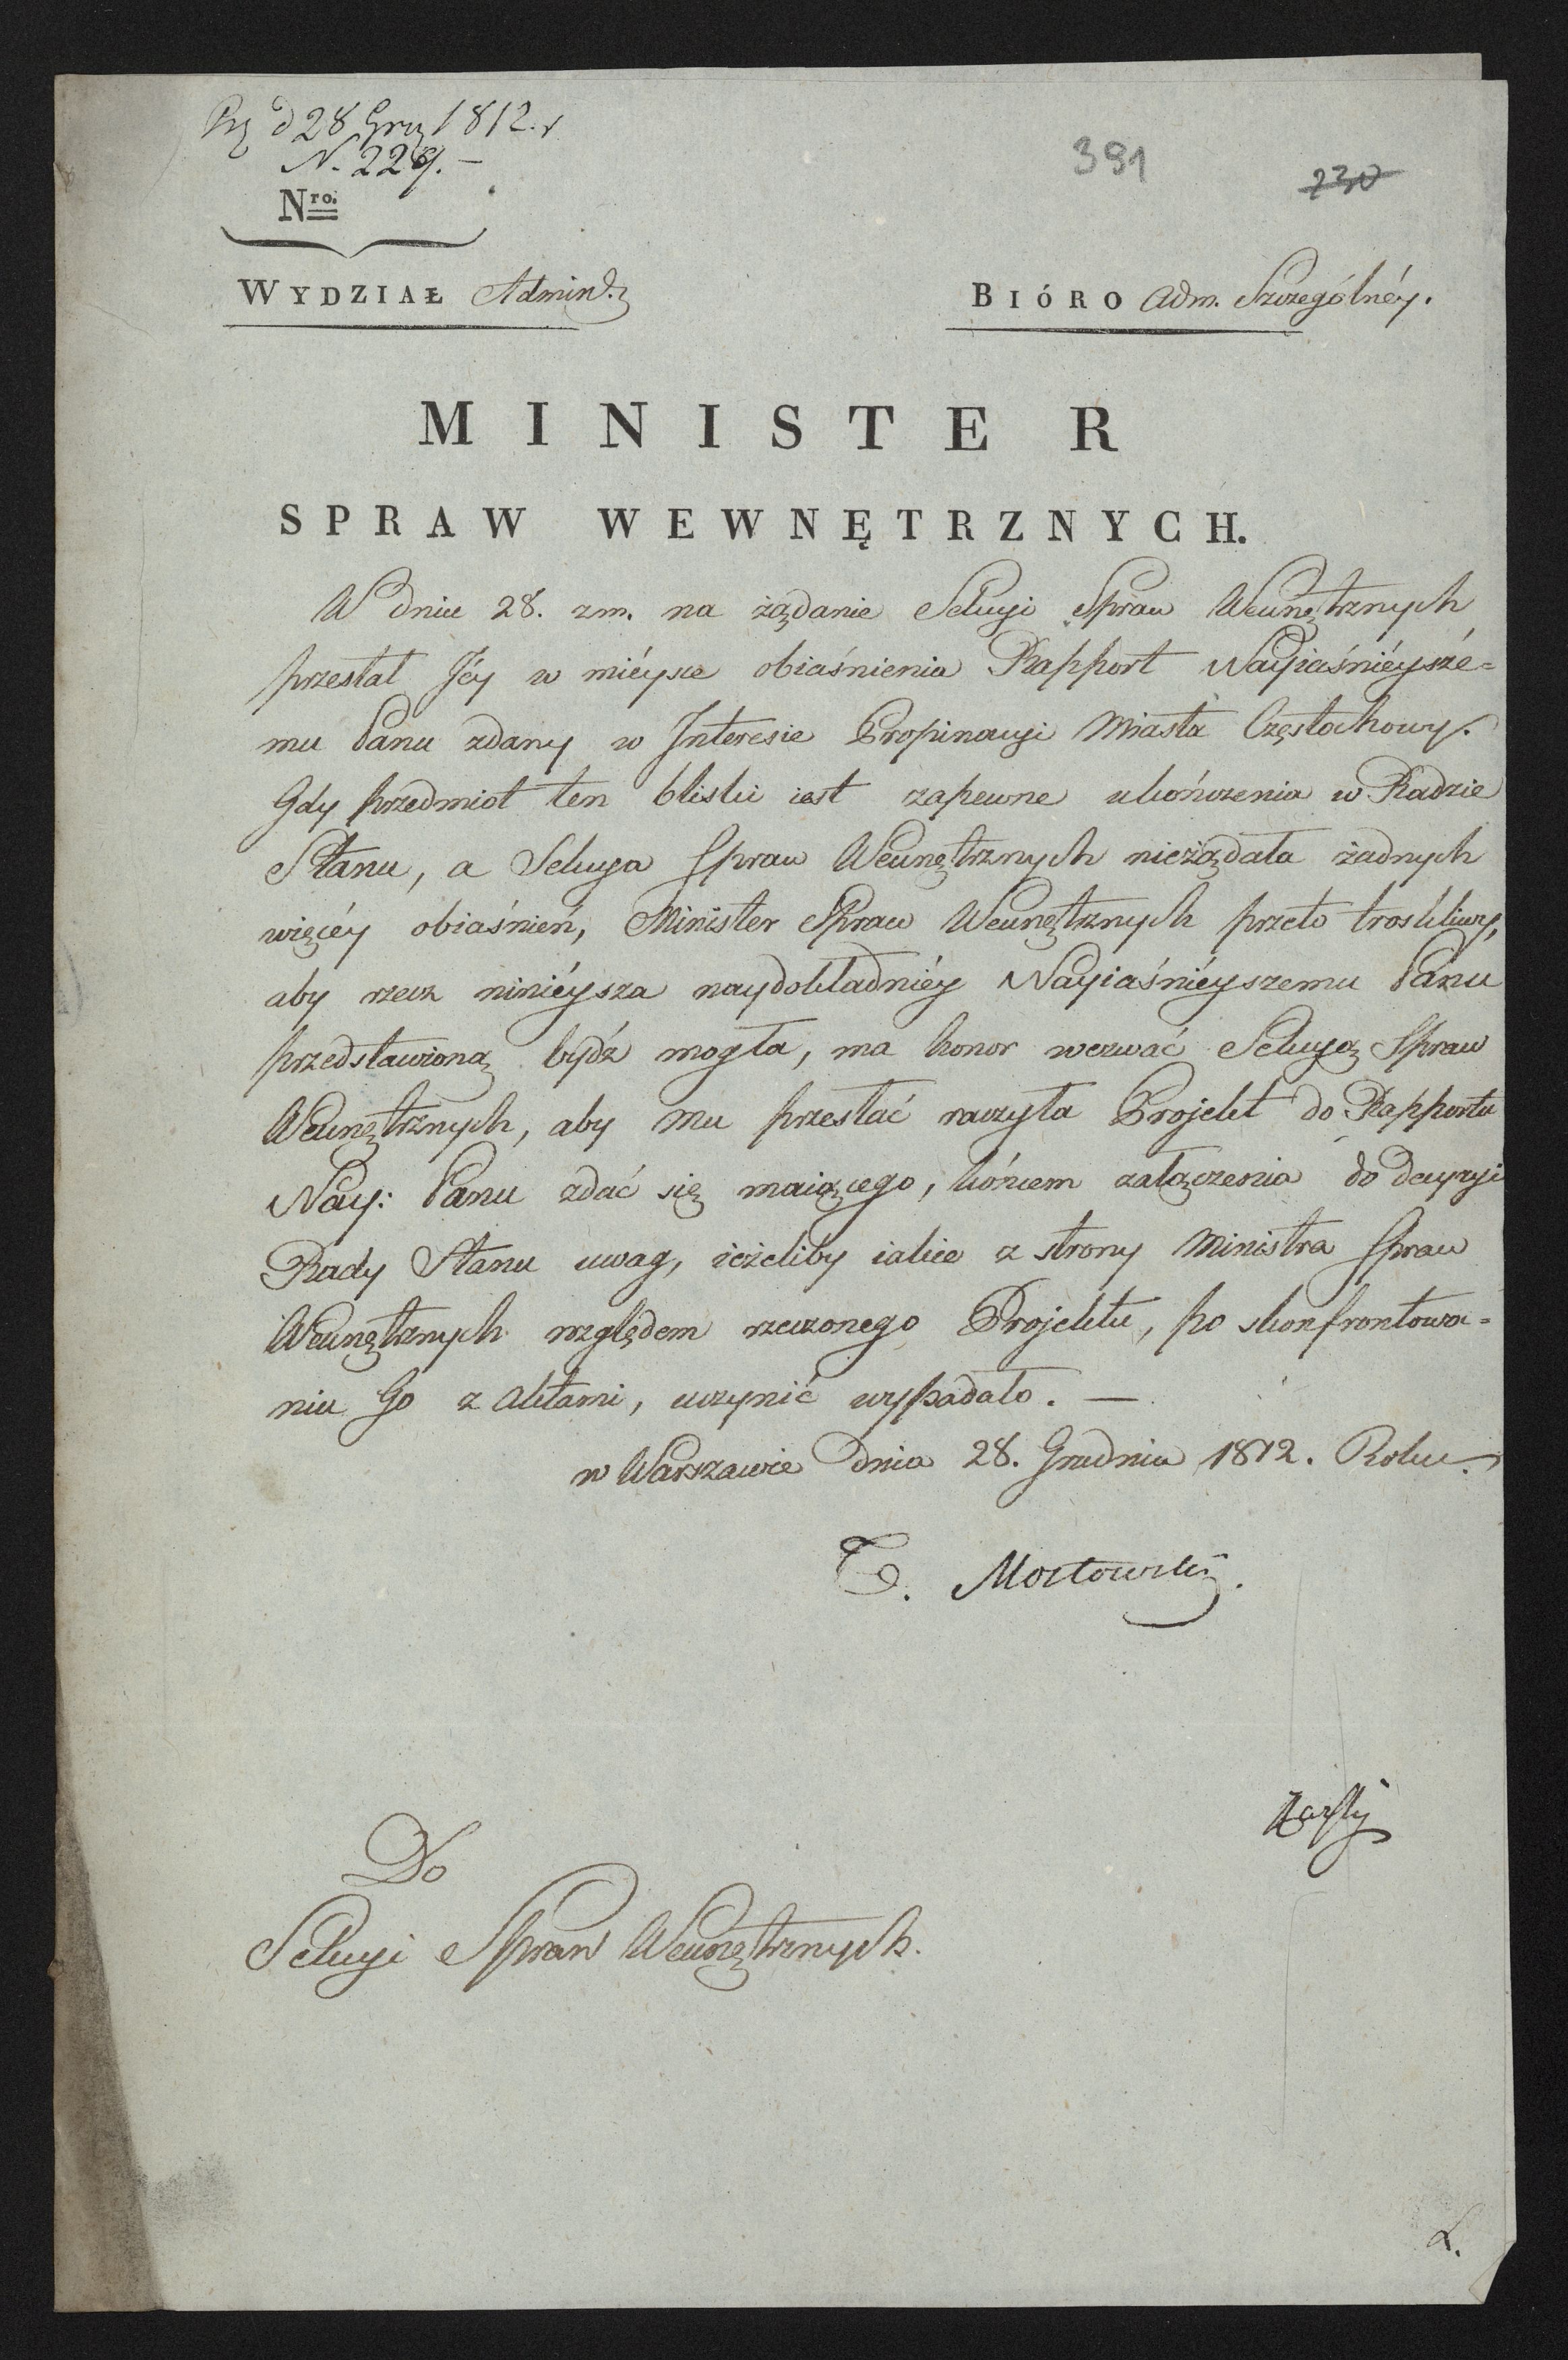 d 28 Gru 1812. r
N. 229. –
391
230
Nro.
WYDZIAŁ Admin.
BIÓRO Adm. Szczególnéy.
MINISTER
SPRAW WEWNĘTRZNYCH.
W dniu 28. zm. na żądanie Sekcyi Spraw Wewnętrznych
przesłał Jéy w miéysce obiaśnienia Rapport Nayiaśniéyszé=
mu Panu zdany w Interesie Propinacyi Miasta Częstochowy.
Gdy przedmiot ten bliski iest zapewne ukończenia w Radzie
Stanu, a Sekcya Spraw Wewnętrznych nieżądała żadnych
więcéy obiaśnień, Minister Spraw Wewnętrznych przeto troskliwy,
aby rzecz niniéysza naydokładniéy Nayiaśniéyszemu Panu
przedstawioną bydź mogła, ma honor wezwać Sekcyą Spraw
Wewnętrznych, aby mu przesłać raczyła Projekt do Rapportu
Nay: Panu zdać się maiącego, końcem załączenia do decyzyi
Rady Stanu uwag, ieżeliby iakie z strony Ministra Spraw
Wewnętrznych względem rzeczonego Projektu, po skonfrontowa=
niu Go z Aktami, uczynić wypadało. —
w Warszawie dnia 28. Grudnia 1812. Roku.
T. Mostowski.
Do
Sekcyi Spraw Wewnętrznych.